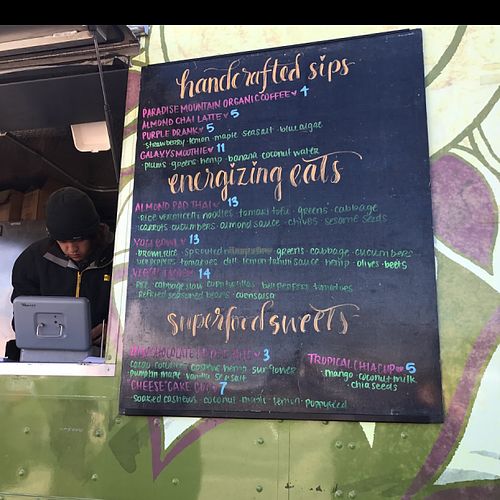 handcrafted sips
PARADISE MOUNTAIN ORGANIC COFFEE 4
ALMOND CHAI LATTE 5
PURPLE DRANK 5
strawberry · lemon · maple · sea salt · blue algae
GALAXY SMOOTHIE 11
plums · greens · hemp · banana · coconut water
energizing eats
ALMOND PAD THAI 13
RICE VERMICELLI NOODLES · TAMARI TOFU · GREENS · CABBAGE
CARROTS · CUCUMBERS · ALMOND SAUCE · CHIVES · SESAME SEEDS
YOGI BOWL 13
BROWN RICE · SPROUTED GREENS · CABBAGE · CUCUMBERS
TOMATOES · DILL LEMON TAHINI SAUCE · HEMP · OLIVES · BEETS
14
CABBAGE SLAW · BELL PEPPERS · TOMATOES
REFRIED SEASONED BEANS
superfood sweets
3
pumpkin · maple · vanilla · sea salt
"CHEESE" CAKE CUP 7
SOAKED CASHEWS · COCONUT · MAPLE · LEMON · POPPYSEED
TROPICAL CHIA CUP 5
mango · coconut milk
chia seeds